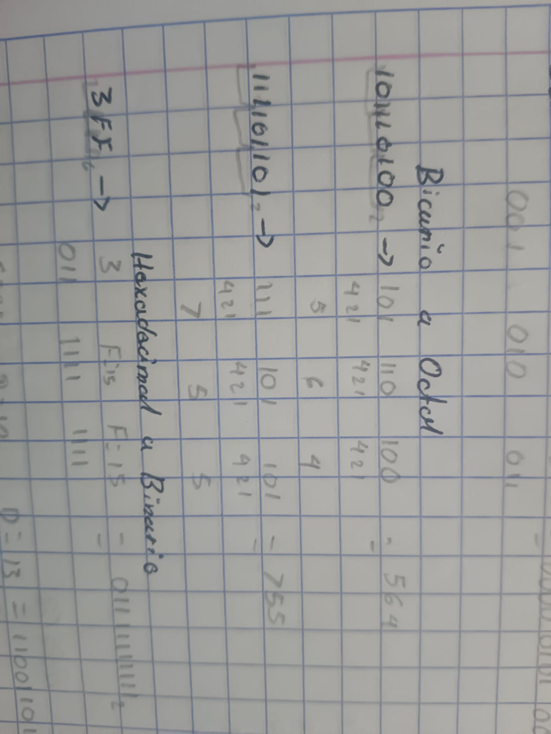 001 010 011
Bicunio a Octal
101110100₂ → 101 110 100 = 564
421 421 421
5 6 4
111101101₂ → 111 101 101 = 755
421 421 421
7 5 5
Hexadecimal a Binario
3FF₁₆ → 3 F=15 F=15 = 01111111111₂
011 1111 1111
D=13 = 11001101